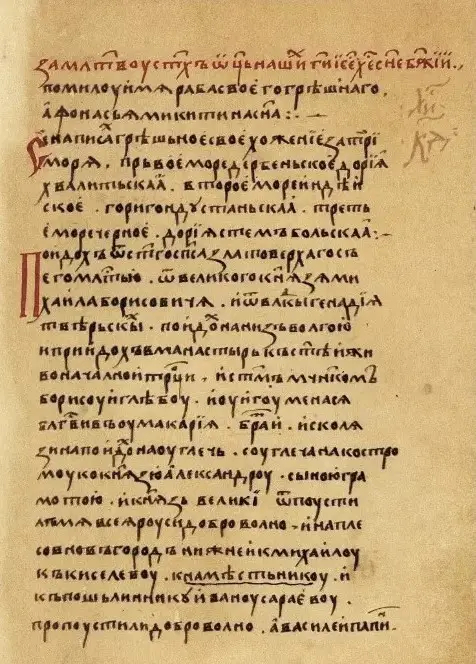 За млтвоу стхъ ѿць нашиⷯ ги їсе хе сне бжїи.
помилоуи мя раба своего грѣшнаго,
афонасья микитина сна:—
написа грѣшьное свое хожение за трї
моря, прьвое море дербеньское дорїя
хвалитьскаа, второе море индѣи
ское, горигондустаньскаа, треть
е море черное, дорїя стемъбольскаа:—
Поидохъ ѿ стг спса златоверхаг сь
его млтью, ѿ великого княѕя ми
хаила борисовичя, и ѿ влкы генадїя
твѣрьскыⷯ, поидоⷯ на низъ волгою
и приидохъ в манастырь къ стѣи жи
воначалнои трци, и стмъ мчнкомъ
борисоу и глѣбоу, и оу игоумена ся
блгвивъ оу макарїя, браⷮи, и с коля
зина поидоⷯ на оуглечь, с оуглеча на костро
моу ко князю александроу, с ыною гра
мотою, и князь великї ѿпоусти
л мя всея роуси доброволно, и на пле
со в новъгородъ нижнеи к михаилоу
къ киселевоу, к намѣстьникоу, и
къ пошьлиннику иваноу сараевоу,
пропоустили доброволно, а василеи папиⷩ